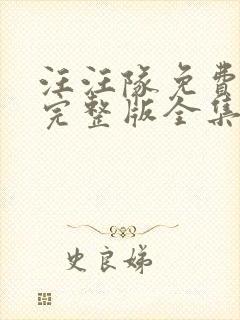 汪汪隊免費
完整版全集
史良娣